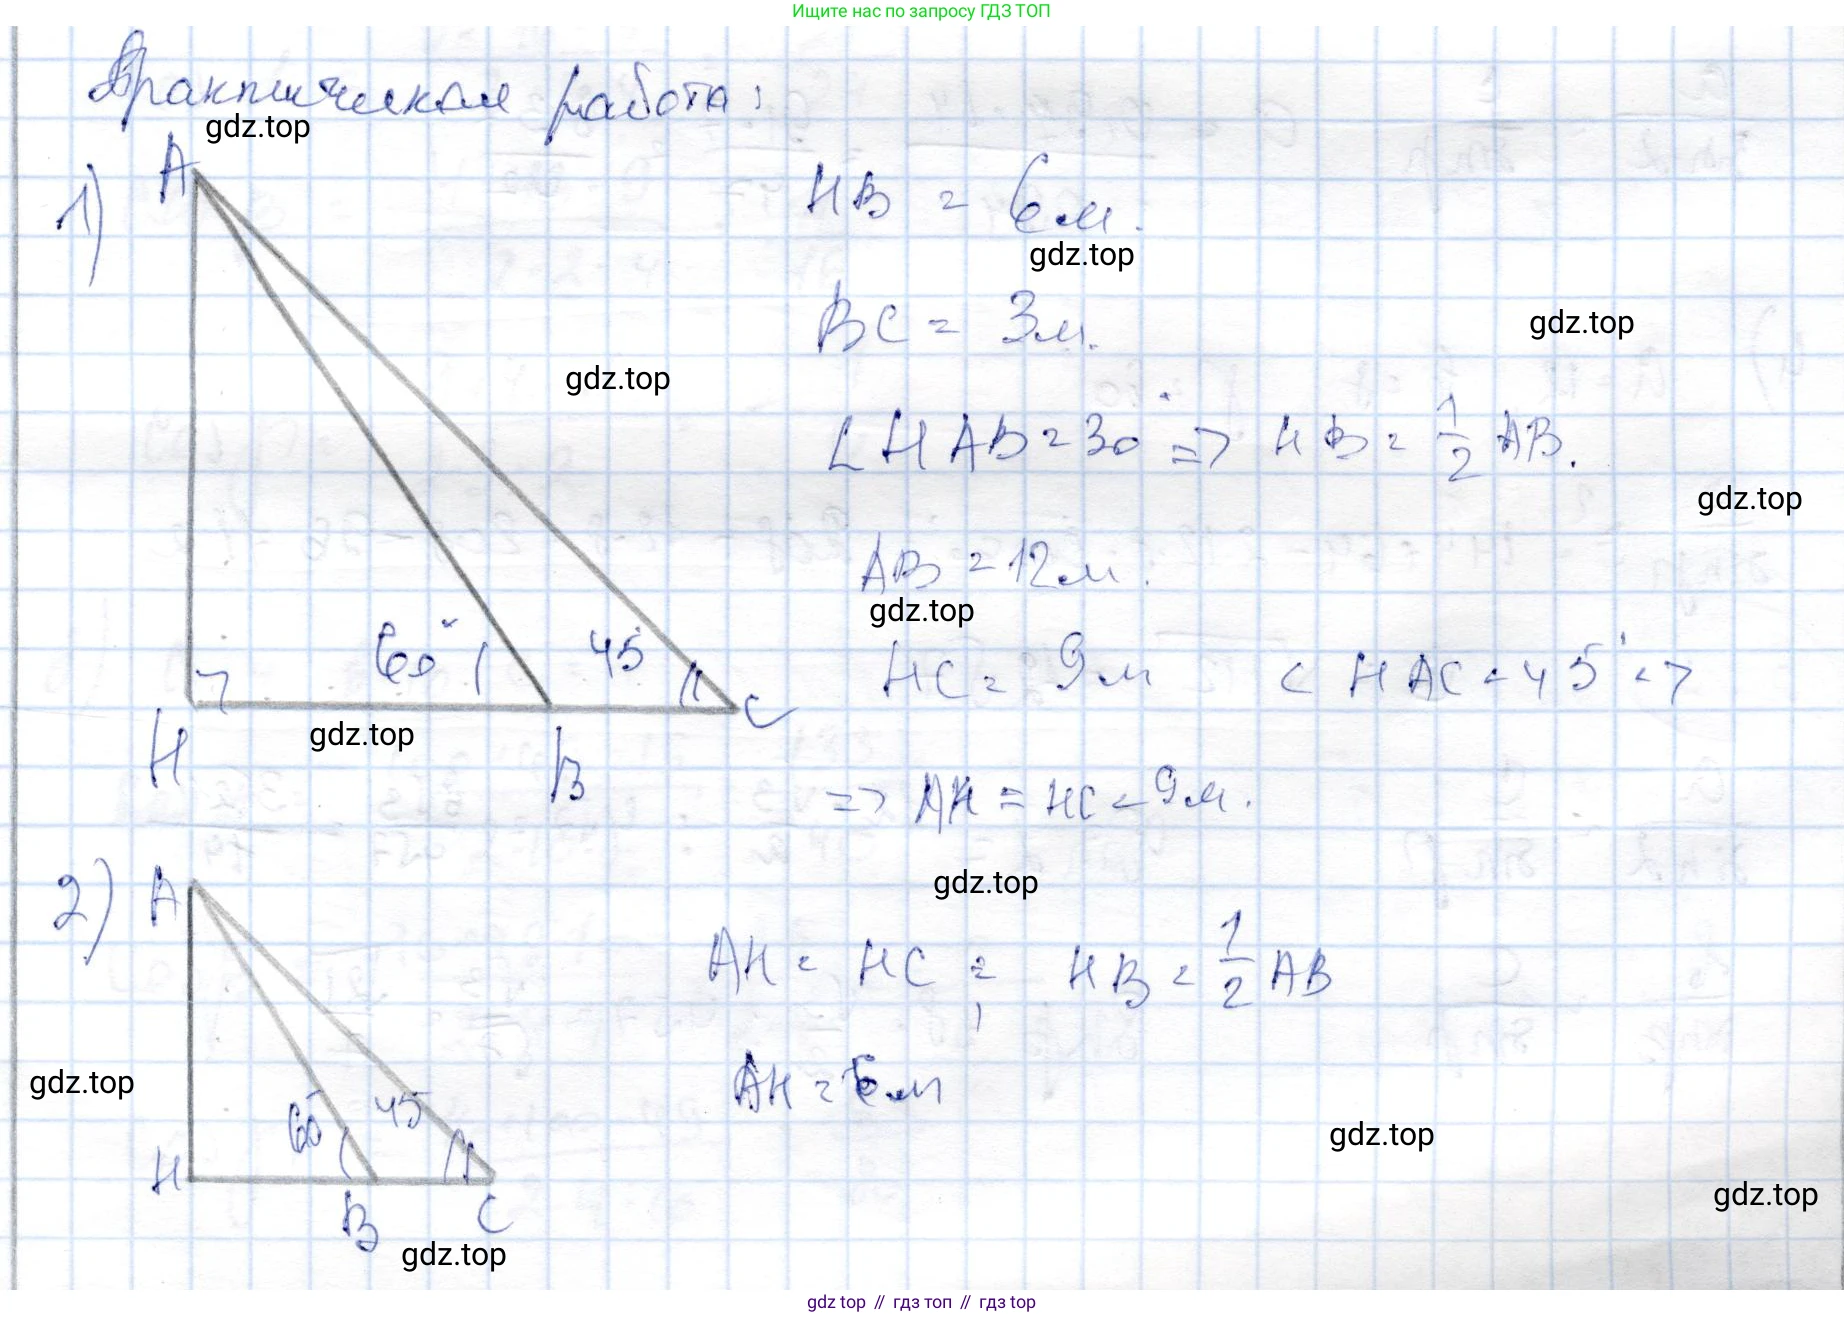 Ищите нас по запросу ГДЗ ТОП
Практическая работа:
gdz.top
1)
A
HB = 6 м.
gdz.top
BC = 3 м.
gdz.top
gdz.top
∠HAB = 30° => HB = 1/2 AB.
gdz.top
AB = 12 м.
gdz.top
60° 45°
HC = 9 м ∠HAC = 45° =>
H B C
gdz.top
=> AH = HC = 9 м.
gdz.top
2)
A
AH = HC; HB = 1/2 AB
gdz.top
AH = 6 м
60° 45°
gdz.top
H B C
gdz.top
gdz.top
gdz top // гдз топ // гдз top